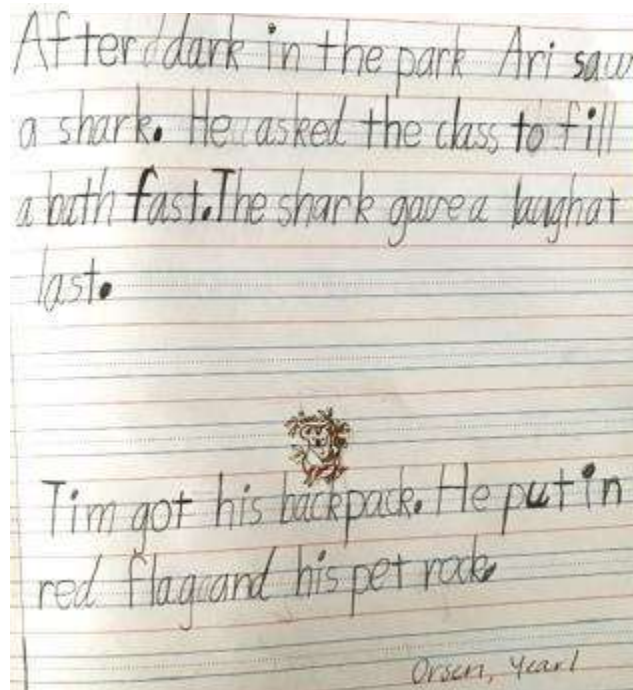 After dark in the park Ari saw
a shark. He asked the class to fill
a bath fast. The shark gave a laugh at
last.
Tim got his backpack. He put in
red flag and his pet rock.
Orsen, Year 1